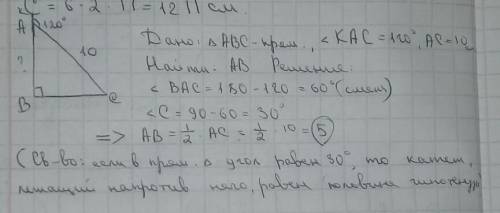 C = 6 · 2 · П = 12П см.
A 120°
Дано: Δ ABC - прям., < KAC = 120°, AC = 10
?
10
Найти: AB Решение:
< BAC = 180 - 120 = 60° (смеж)
B
C
< C = 90 - 60 = 30°
=> AB = 1/2 AC = 1/2 · 10 = 5
(Св-во: если в прям. Δ угол равен 30°, то катет,
лежащий напротив него, равен половине гипотенузы